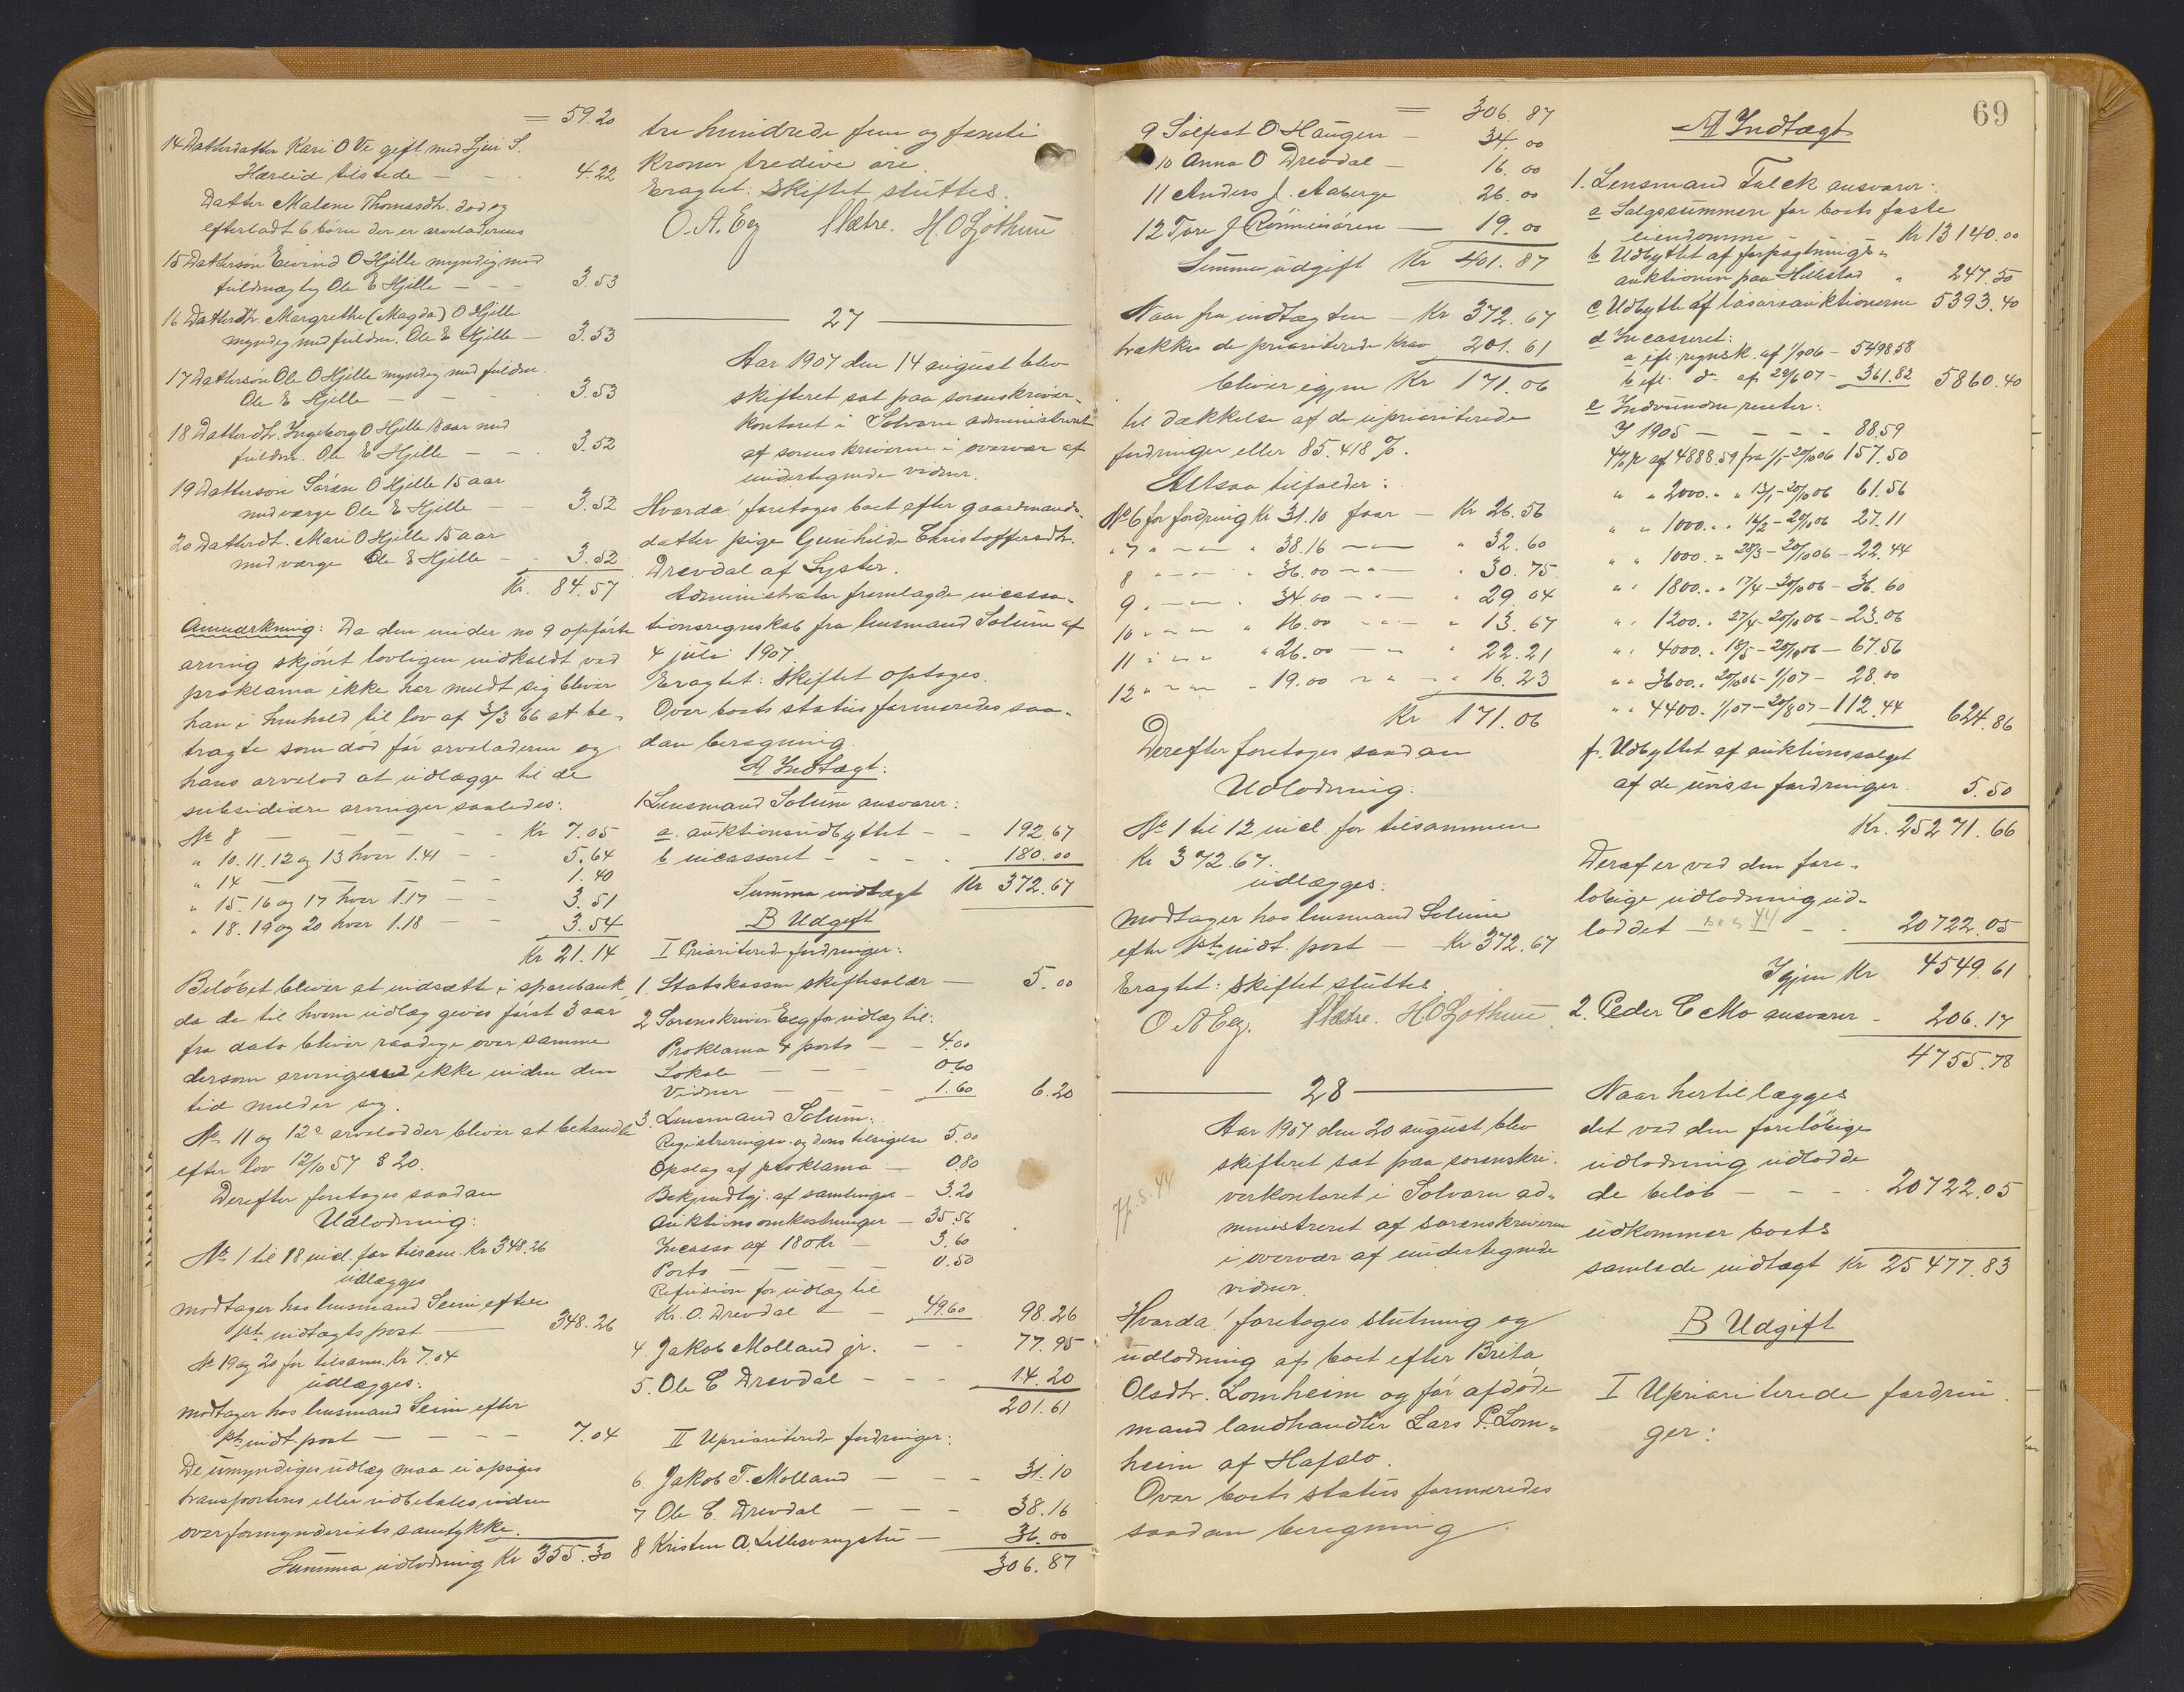 = 59.20
14 Datterdatter Kari O Ve gift med Sjur S.
Hæreid tilstede — - - 4.22
Datter Malene Thomasdtr. død og
efterladt 6 børn der er arveladerens
15 Dattersøn Eivind O Hjelle myndig med
fuldmægtig Ole E Hjelle — - - 3.53
16 Datterdtr. Margrethe (Magda) O Hjelle
myndig med fuldm. Ole E Hjelle — 3.53
17 Dattersøn Ole O Hjelle myndig med fuldm.
Ole E Hjelle — - - 3.53
18 Datterdtr. Ingeborg O Hjelle 18 aar med
fuldm. Ole E Hjelle — - 3.52
19 Dattersøn Søren O Hjelle 15 aar
med værge Ole E Hjelle — - 3.52
20 Datterdt. Mari O Hjelle 15 aar
med værge Ole E Hjelle - - 3.52
Kr. 84.57
Anmærkning: Da den under no 9 opførte
arving skjønt lovligen indkaldt ved
proklama ikke har meldt sig bliver
han i henhold til lov af 3/3 66 at be-
tragte som død før arveladeren og
hans arvelod at udlægge til de
subsidiære arvinger saaledes:
No 8 — — - - Kr 7.05
" 10. 11. 12 og 13 hver 1.41 - - 5.64
" 14 — — — - 1.40
" 15. 16 og 17 hver 1.17 - - 3.51
" 18. 19 og 20 hver 1.18 - - 3.54
Kr 21.14
Beløbet bliver at indsætte i sparebank,
da de til hvem udlæg gives først 3 aar
fra dato bliver raadige over samme
dersom arvingen ikke inden den
tid melder sig.
No 11 og 12s arvelodder bliver at behandle
efter lov 12/10 57 § 20.
Derefter foretoges saadan
Udlodning:
No 1 til 18 incl. for tilsam. Kr 348.26
udlægges
modtager hos lensmand Seim efter
1ste indtægts post — 348.26
No 19 og 20 for tilsam. Kr 7.04
udlægges:
modtager hos lensmand Seim efter
1ste indt. post — - - - 7.04
De umyndiges udlæg maa ei opsiges
transporteres eller udbetales uden
overformynderiets samtykke.
Summa udlodning Kr 355.30
tre hundrede fem og femti
kroner tredive øre.
Eragtet: Skiftet sluttes.
O. A. Eeg Sætre. H. O Lothun
27
Aar 1907 den 14 august blev
skifteret sat paa sorenskriver-
kontoret i Solvorn administreret
af sorenskriveren i overvær af
undertegnede vidner.
Hvorda! foretoges boet efter gaardmands-
datter pige Gunhilde Christoffersdtr.
Drevdal af Lyster.
Administrator fremlagde incassa-
tionsregnskab fra lensmand Solum af
4 juli 1907
Eragtet: Skiftet optages.
Over boets status formeredes saa-
dan beregning.
A Indtægt:
1 Lensmand Solum ansvarer:
a. auktionsudbyttet - - 192.67
b incasseret - - - - 180.00
Summa indtægt Kr 372.67
B Udgift
I Prioriterede fordringer:
1. Statskassen skiftesalær — 5.00
2 Sorenskriver Eeg for udlæg til:
Proklama & porto — - 4.00
Lokale — — - 0.60
Vidner — — - 1.60 6.20
3. Lensmand Solum:
Registrerings- og dens tilsigelse 5.00
Opslag af proklama — 0.80
Bekjendtgj. af samlinger — 3.20
Auktionsomkostninger — 35.56
Incasso af 180 Kr — 3.60
Porto — — — - 0.50
Refusion for udlæg til
Kr. O. Drevdal — - 49.60 98.26
4. Jakob Molland jr. - - 77.95
5. Ole C Drevdal - - - 14.20
201.61
II Uprioriterede fordringer:
6 Jakob T. Molland — - - 31.10
7 Ole C. Drevdal — - - 38.16
8 Kristen A. Lillesvangstu — 36.00
306.87
= 306.87
9 Sølfest O Haugen — 34.00
10 Anna O Drevdal — 16.00
11 Anders J. Aaberge 26.00
12 Tore J Rønneisøren — 19.00
Summa udgift Kr 401.87
Naar fra indtægten — Kr 372.67
trækkes de prioriterede krav 201.61
bliver igjen Kr 171.06
til dækkelse af de uprioriterede
fordringer eller 85.418 %.
Altsaa tilfalder:
No 6 for fordring Kr 31.10 faar — Kr 26.56
" 7 " — — " 38.16 — — " 32.60
8 " — — " 36.00 — — " 30.75
9 " — — " 34.00 — — " 29.04
10 " — — " 16.00 — — " 13.67
11 " — — " 26.00 — — " 22.21
12 " — — " 19.00 — — " 16.23
Kr 171.06
Derefter foretoges saadan
Udlodning:
No 1 til 12 incl. for tilsammen
Kr 372.67.
udlægges:
modtager hos lensmand Solum
efter 1ste indt. post — Kr 372.67
Eragtet: Skiftet sluttes
O A Eeg. Sætre. H. O Lothun.
28
Aar 1907 den 20 august blev
skifteret sat paa sorenskri-
verkontoret i Solvorn ad-
ministreret af sorenskriveren
i overvær af undertegnede
vidner.
jf. s. 44
Hvorda! foretoges slutning og
udlodning af boet efter Brita
Olsdtr. Lomheim og før afdøde
mand landhandler Lars P. Lom-
heim af Hafslo.
Over boets status formeredes
saadan beregning.
69
A Indtægt
1. Lensmand Falck ansvarer:
a Salgssummen for boets faste
eiendomme - Kr 13140.00
b Udbyttet af forpagtnings-
auktionen paa Hillestad " 247.50
c Udbytte af løsøreauktionerne 5393.40
d Incasseret:
a efl. regnsk. af 1/9 06 — 5498 58
b efl. do af 29/6 07 — 361.82 5860.40
e Indvundne renter:
I 1905 — - - - 88.59
4 % p af 4888.59 fra 1/1-20/10 06 157.50
" " 2000. " " 13/1-20/10 06 61.56
" " 1000. " " 14/2-20/10 06 27.11
" " 1000. " 28/3-20/10 06 - 22.44
" " 1800. " " 17/4-20/10 06 - 36.60
" " 1200. " 27/4-20/10 06 - 23.06
" " 4000. " 18/5-20/10 06 - 67.56
" " 3600. " 20/10 06-1/1 07 - 28.00
" " 4400. 1/1 07-20/8 07 - 112.44 624.86
f. Udbyttet af auktionssalget
af de uvisse fordringer. 5.50
Kr. 25271.66
Deraf er ved den fore-
løbige udlodning ud-
loddet — - - 20722.05
Igjen Kr 4549.61
2. Peder C Mo ansvarer - 206.17
4755.78
Naar hertil lægges
det ved den foreløbige
udlodning udlodde
de beløb — - - 20722.05
udkommer boets
samlede indtægt Kr 25477.83
B Udgift
I Uprioriterede fordrin
ger: